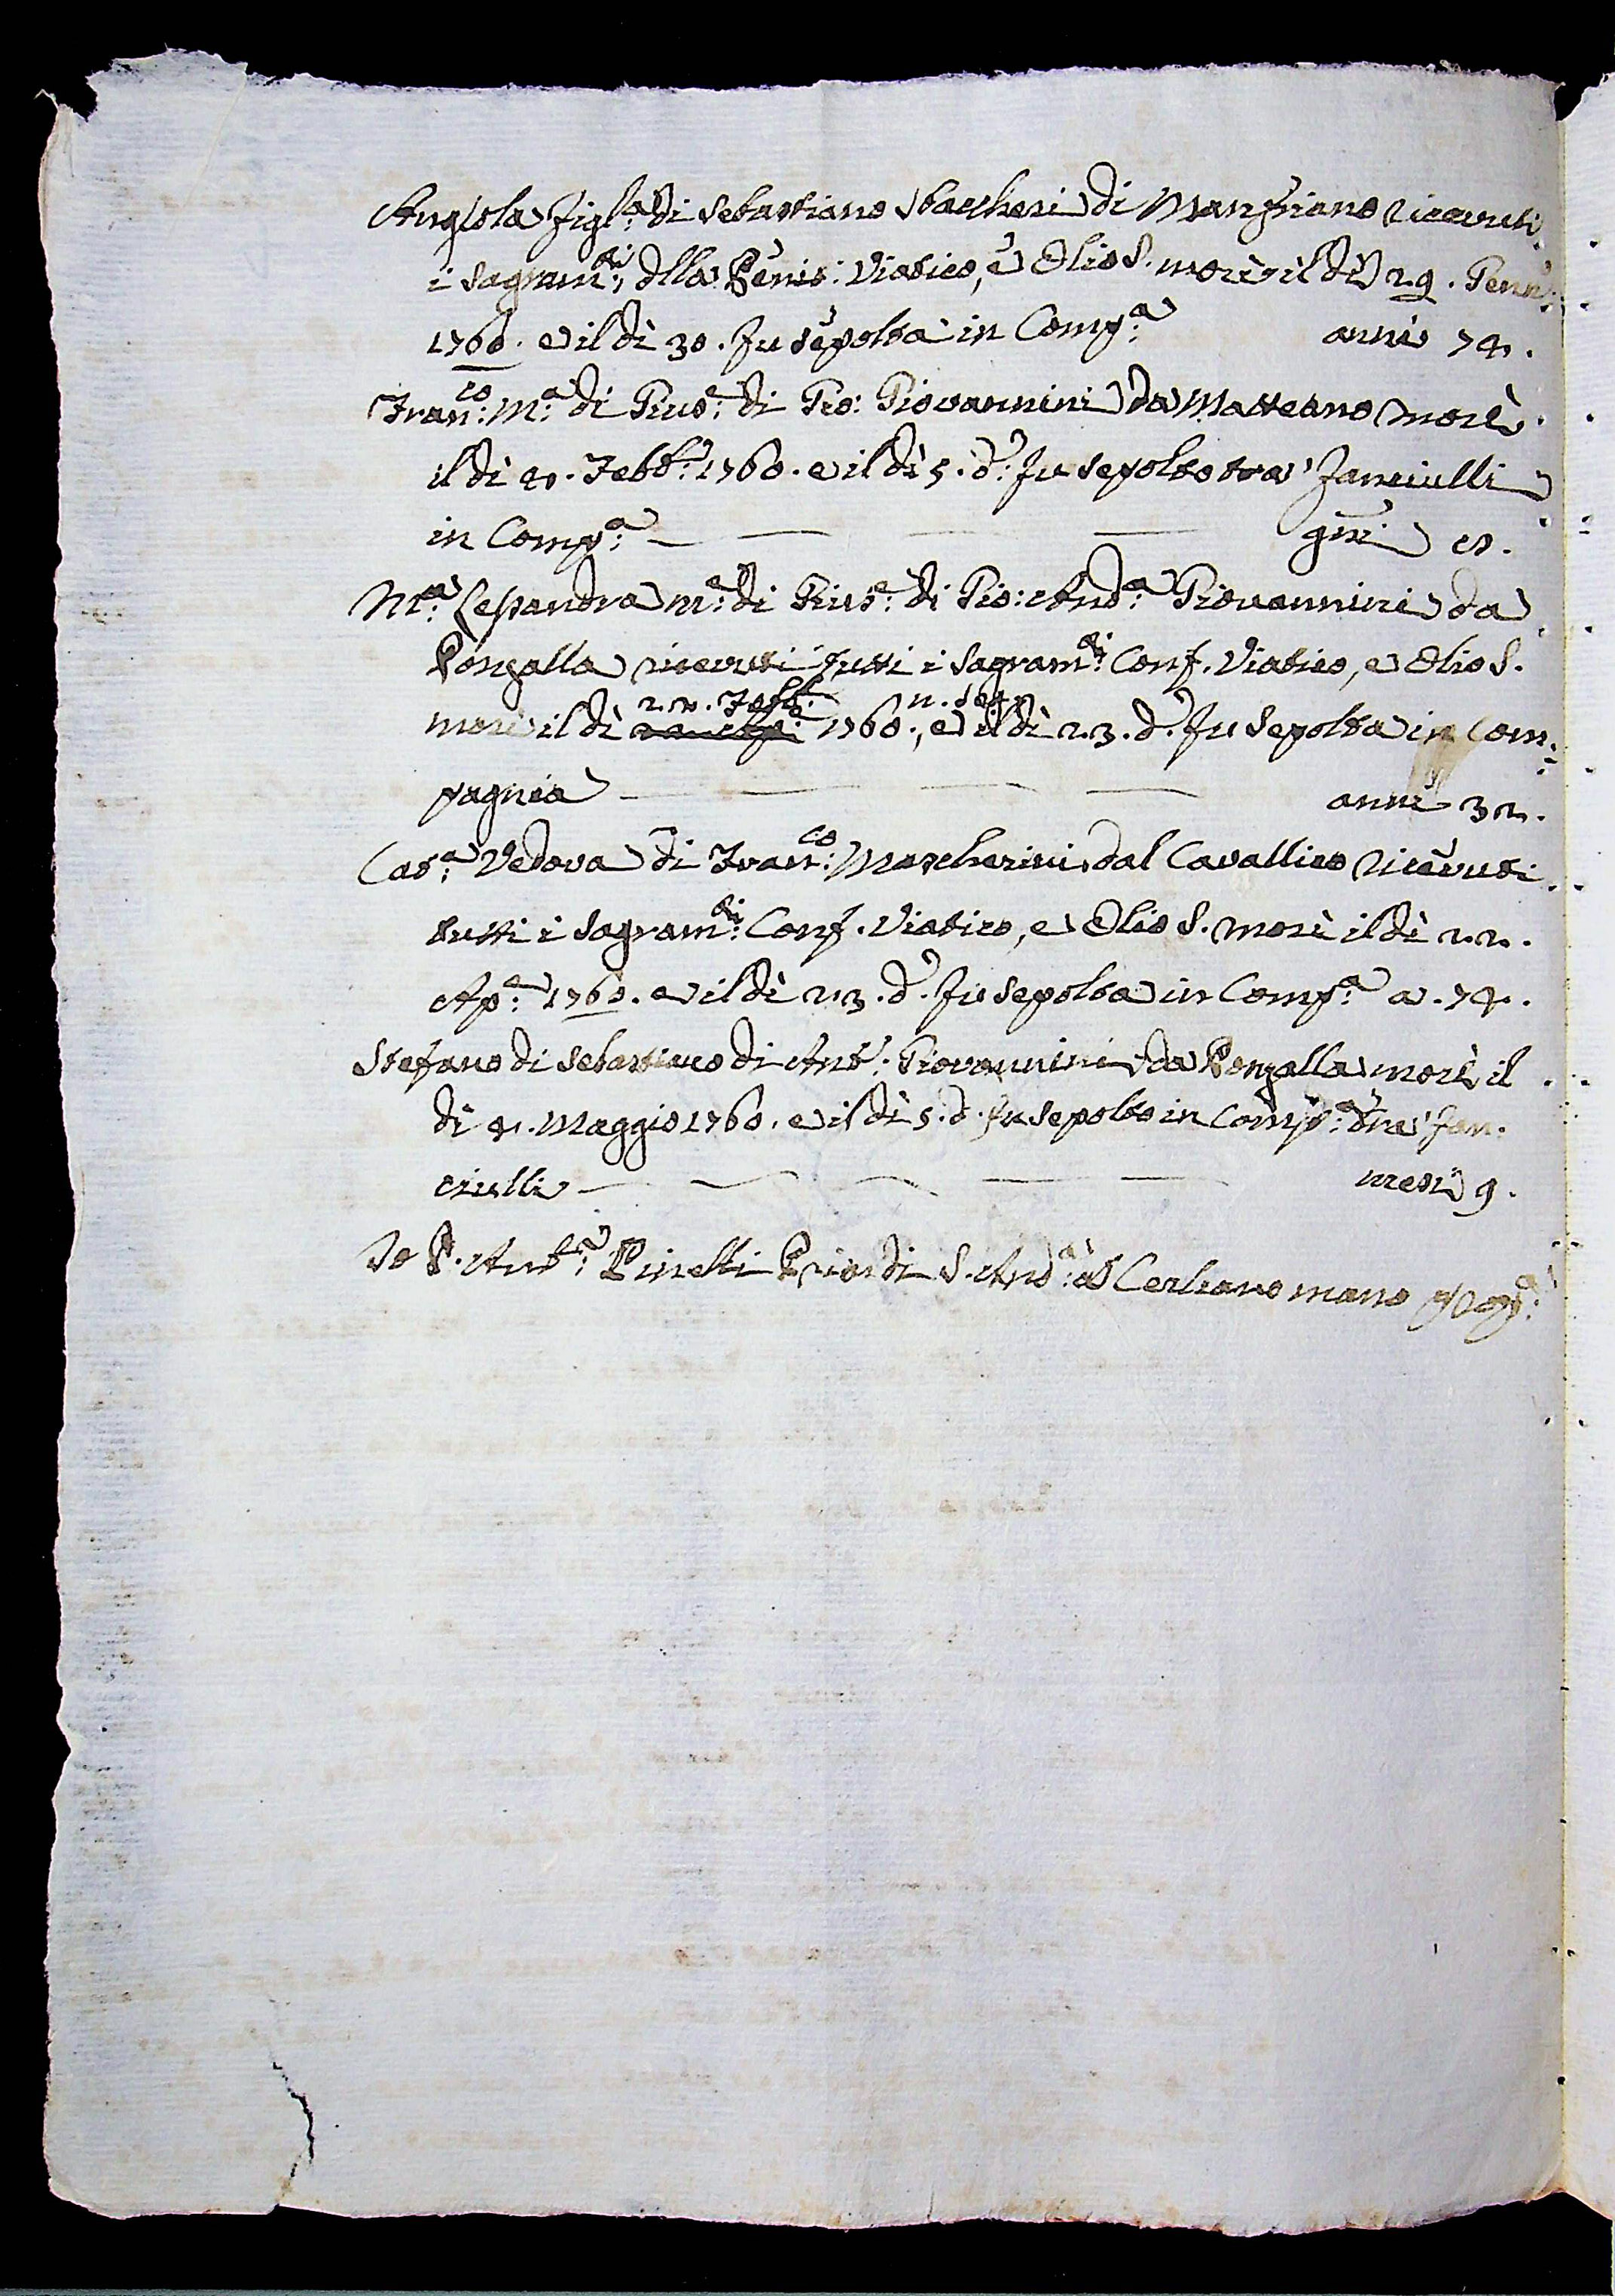 Angiola Figl:a di Sebastiano Sbaccheri di Manfriano ricevuti
i Sagram:ti dlla Penit: Viatico, e Olio S. morì il dì 29. Genn:
1760. e il dì 30. fu sepolta in Comp:a anni 74.
Fran:co M:a di Gius:e di Gio: Giovannini da Matteano morì
il dì 4. Febb: 1760. e il dì 5. d: fu sepolto tra' Fanciulli
in Comp:a — — — gni
M:a Lessandra m:e di Gius:e di Gio: And:a Giovannini da
Ronzalla ricevuti tutti i Sagram:ti Conf. Viatico, e Olio S.
22. Febb:
morì il dì 1760., e il dì 23. d. fu sepolta in Com:
pagnia — — — anni 32.
Cat:a Vedova di Fran:co Mascherini dal Cavallico ricevuti
tutti i Sagram:ti Conf. Viatico, e Olio S. morì il dì 22.
Ap:e 1760. e il dì 23. d. fu sepolta in Comp:a a. 74.
Stefano di Sebastiano di Ant: Giovannini da Ronzalla morì il
dì 4. Maggio 1760. e il dì 5. d. fu sepolto in Comp:a tra' fan:
ciulli — — — — mesi 9.
Io P. Ant: Pinelli Prior di S. And:a a Cerliano mano pp:a